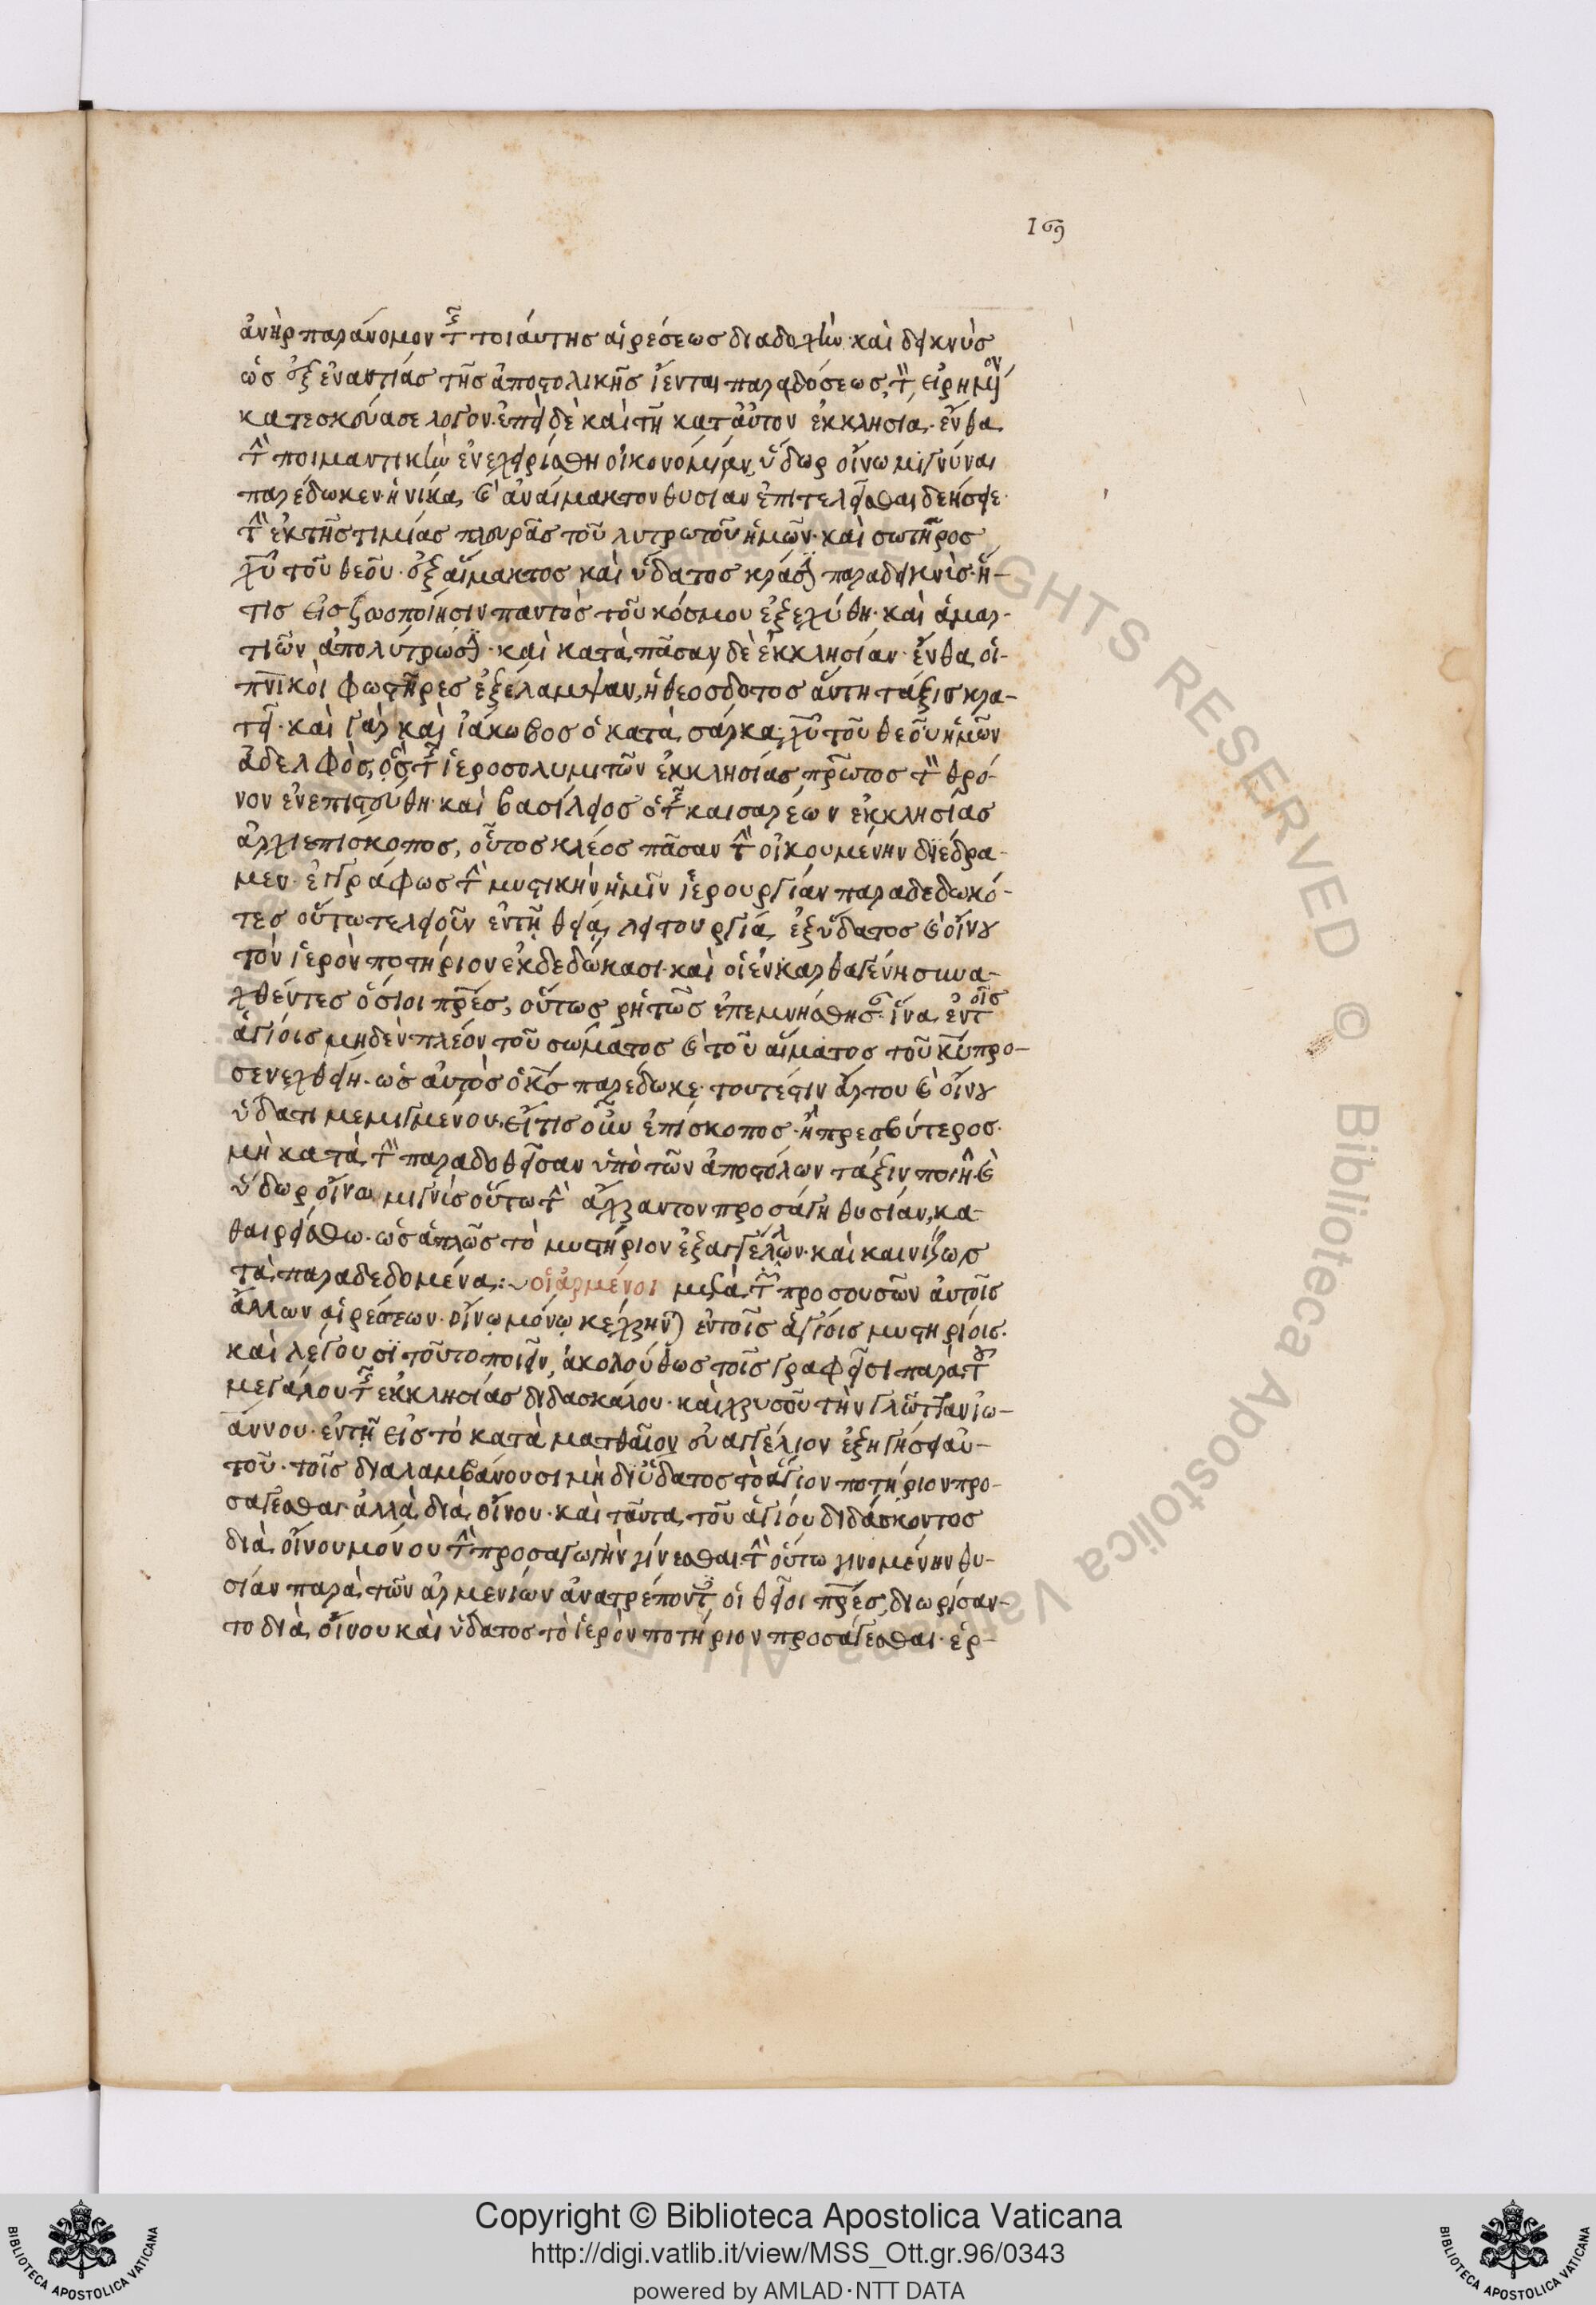 169
ἀνὴρ παράνομον τῆς τοιάυτης αἱρέσεως διαδοχὴν· καὶ δεικνὺς
ὡς ἐξ ἐναντίας τῆς ἀποστολικῆς ἵενται παραδόσεως, τὸν εἰρημένον
κατεσκεύασε λόγον. ἐπεὶ δὲ καὶ τῆ κατ ἀυτὸν ἐκκλησία· ἔνθα
τὴν ποιμαντικὴν ἐνεχειρίσθη οἰκονομίαν, ὕδωρ οἴνω μιγνύναι
παρέδωκεν· ἡνίκα τὴν ἀναίμακτον θυσίαν ἐπιτελεῖσθαι δεήσειε·
τὴν ἐκ τῆς τιμίας πλευρᾶς τοῦ λυτρωτοῦ ἡμῶν· καὶ σωτῆρος
χυ τοῦ θεοῦ· ἐξ αἵματος καὶ ὕδατος κρᾶσιν παραδεικνὺς· ἥ-
τις εἰς ζωοποίησιν παντὸς τοῦ κόσμου ἐξεχύθη· καὶ ἁμαρ-
τιῶν ἀπολύτρωσιν· καὶ κατὰ πᾶσαν δὲ ἐκκλησίαν· ἔνθα οἱ
πνικοὶ φωστῆρες ἐξέλαμψαν, ἡ θεόσδοτος ἅυτη τάξις κρα-
τεῖ· καὶ γὰρ καὶ ἰάκωβος ὁ κατὰ σάρκα χυ τοῦ θεοῦ ἡμῶν
ἀδελφὸς, ὃς τῆς ἱεροσολυμιτῶν ἐκκλησίας πρῶτος τὸν θρό-
νον ἐνεπιστεύθη· καὶ βασίλειος ὁ τῆς καισαρέων ἐκκλησίας
ἀρχιεπίσκοπος, οὗτος κλέος πᾶσαν τὴν οἰκουμένην διέδρα-
μεν· ἐγγράφως τὴν μυστικὴν ἡμῖν ἱερουργίαν παραδεδωκό-
τες οὕτω τελειοῦν ἐν τῆ θεία λειτουργία ἐξ ὕδατος καὶ οἴνου
τὸν ἱερὸν ποτήριον ἐκδεδώκασι· καὶ οἱ ἐν καρθαγένη συνα-
χθέντες ὅσιοι πρες, οὕτως ῥητῶς ἐπεμνήσθησαν· ἵνα ἐν τοῖς
ἁγίοις μηδὲν πλέον τοῦ σώματος καὶ τοῦ αἵματος τοῦ κυ προ-
σενεχθείη· ὡς αὐτὸς ὁ κς παρέδωκε· τουτέστιν ἄρτου καὶ οἴνου
ὕδατι μεμιγμένου. εἴ τις οὖν ἐπίσκοπος· ἢ πρεσβύτερος·
μὴ κατὰ τὴν παραδοθεῖσαν ὑπὸ τῶν ἀποστόλων τάξιν ποιῆ· καὶ
ὕδωρ οἴνω μιγνὺς οὕτω τὴν ἄχραντον προσάγη θυσίαν, κα-
θαιρείσθω· ὡς ἀτελῶς τὸ μυστήριον ἐξαγγέλλων· καὶ καινίζων
τὰ παραδεδομένα:~ οἱ ἀρμένοι μετὰ τῶν προσουσῶν ἀυτοῖς
ἄλλων αἱρέσεων· οἴνω μόνω κέχρηνται ἐν τοῖς ἁγίοις μυστηρίοις·
καὶ λέγουσι τοῦτο ποιεῖν, ἀκολούθως τοῖς γραφεῖσι παρὰ τοῦ
μεγάλου τῆς ἐκκλησίας διδασκάλου· καὶ χρυσοῦ τὴν γλῶτταν ἰω-
άννου· ἐν τῆ εἰς τὸ κατὰ ματθαῖον εὐαγγέλιον ἐξηγήσει αὐ-
τοῦ· τοῖς διαλαμβάνουσι μὴ δι ὕδατος τὸ ἅγιον ποτήριον προ-
σάγεσθαι ἀλλὰ διὰ οἴνου· καὶ ταῦτα τοῦ ἁγίου διδάσκοντος
διὰ οἴνου μόνου τὴν προσαγωγὴν γίνεσθαι τὴν οὕτω γινομένην θυ-
σίαν παρὰ τῶν ἀρμενίων ἀνατρέποντες οἱ θεῖοι πρες, διωρίσαν-
το διὰ οἴνου καὶ ὕδατος τὸ ἱερὸν ποτήριον προσάγεσθαι· ἑρ-
Copyright © Biblioteca Apostolica Vaticana
http://digi.vatlib.it/view/MSS_Ott.gr.96/0343
powered by AMLAD·NTT DATA